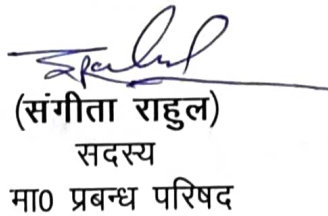 (संगीता राहुल)
सदस्य
मा0 प्रबन्ध परिषद